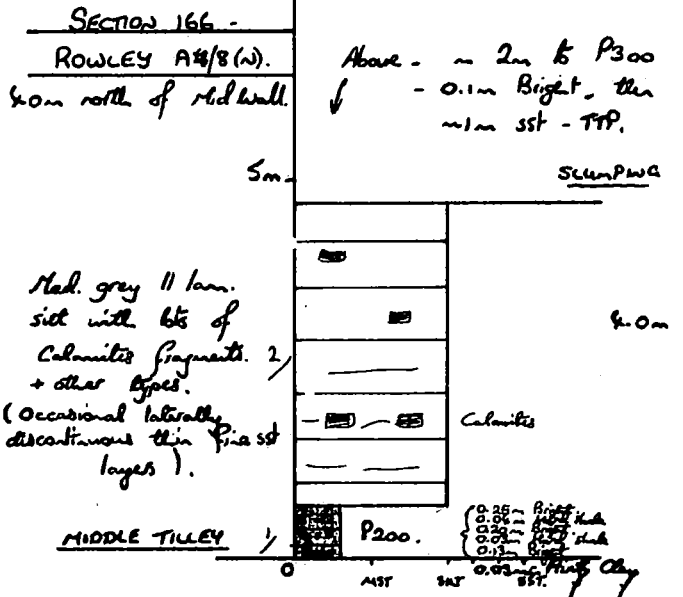 SECTION 166 -
ROWLEY A#/8 (N).
4.0m north of Midwall.
Above - ~ 2m to P300
- 0.1m Bright, then
~1m sst - TTP.
5m
SLUMPING
Med. grey // lam.
silt with lots of
Calamites fragments. 2
+ other types.
(Occasional laterally
discontinuous thin fine sst
layers).
4.0m
Calamites
MIDDLE TILLEY 1
P200.
0.25m Bright
0.06m
0.20m Bright
0.03m
0.13m Bright
0.03m Clay
0
MST SILT SST.